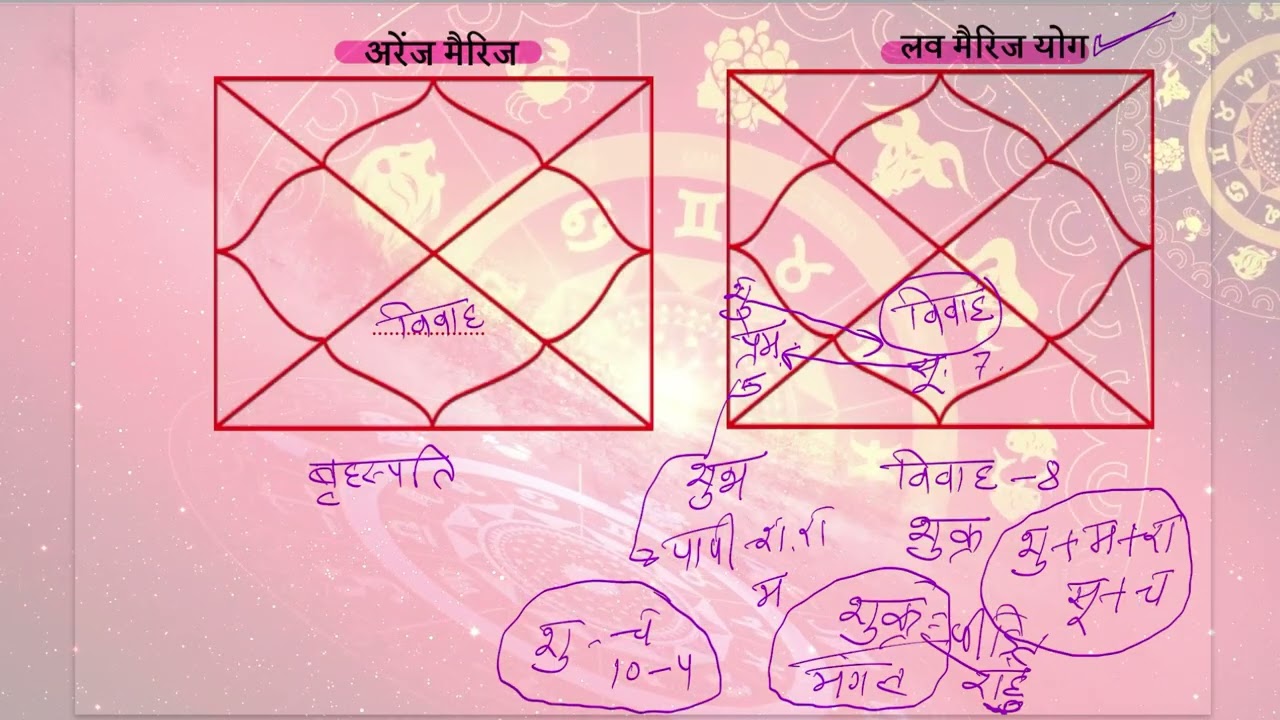 अरेंज मैरिज
लव मैरिज योग
विवाह
शु
विवाह
प्रेम
सू. 7.
5
बृहस्पति
शुभ
विवाह - 8
पापी - श. रा
शुक्र
शु + म + रा
सू + च
म
शु - च
10 - 4
शुक्र
मंगल
राहु